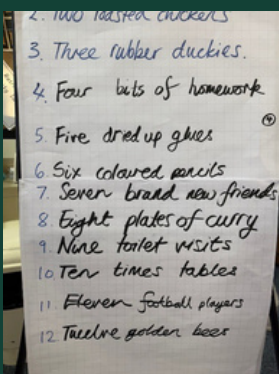 2. Two roasted chickens
3. Three rubber duckies.
4. Four bits of homework
4
5. Five dried up glues
6. Six coloured pencils
7. Seven brand new friends
8 Eight plates of curry
9. Nine toilet visits
10 Ten times tables
11 Eleven football players
12 Twelve golden bees